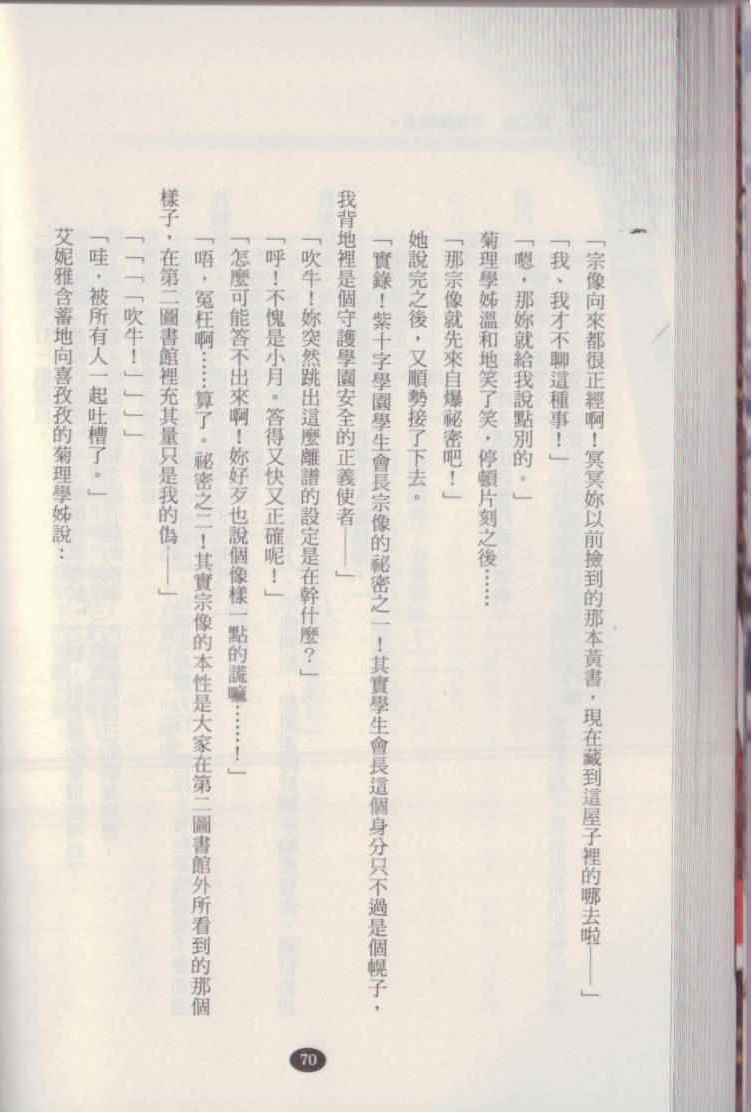 「宗像向來都很正經啊！冥冥妳以前撿到的那本黃書，現在藏到這屋子裡的哪去啦——」
「我、我才不聊這種事！」
「嗯，那妳就給我說點別的。」
菊理學姊溫和地笑了笑，停頓片刻之後……
「那宗像就先來自爆祕密吧！」
她說完之後，又順勢接了下去。
「實錄！紫十字學園學生會長宗像的祕密之一！其實學生會長這個身分只不過是個幌子，
我背地裡是個守護學園安全的正義使者——」
「吹牛！妳突然跳出這麼離譜的設定是在幹什麼？」
「呼！不愧是小月。答得又快又正確呢！」
「怎麼可能答不出來啊！妳好歹也說個像樣一點的謊嘛……！」
「唔，冤枉啊……算了。祕密之二！其實宗像的本性是大家在第二圖書館外所看到的那個
樣子，在第二圖書館裡充其量只是我的偽——」
「「「「吹牛！」」」」
「哇，被所有人一起吐槽了。」
艾妮雅含蓄地向喜孜孜的菊理學姊說：
70